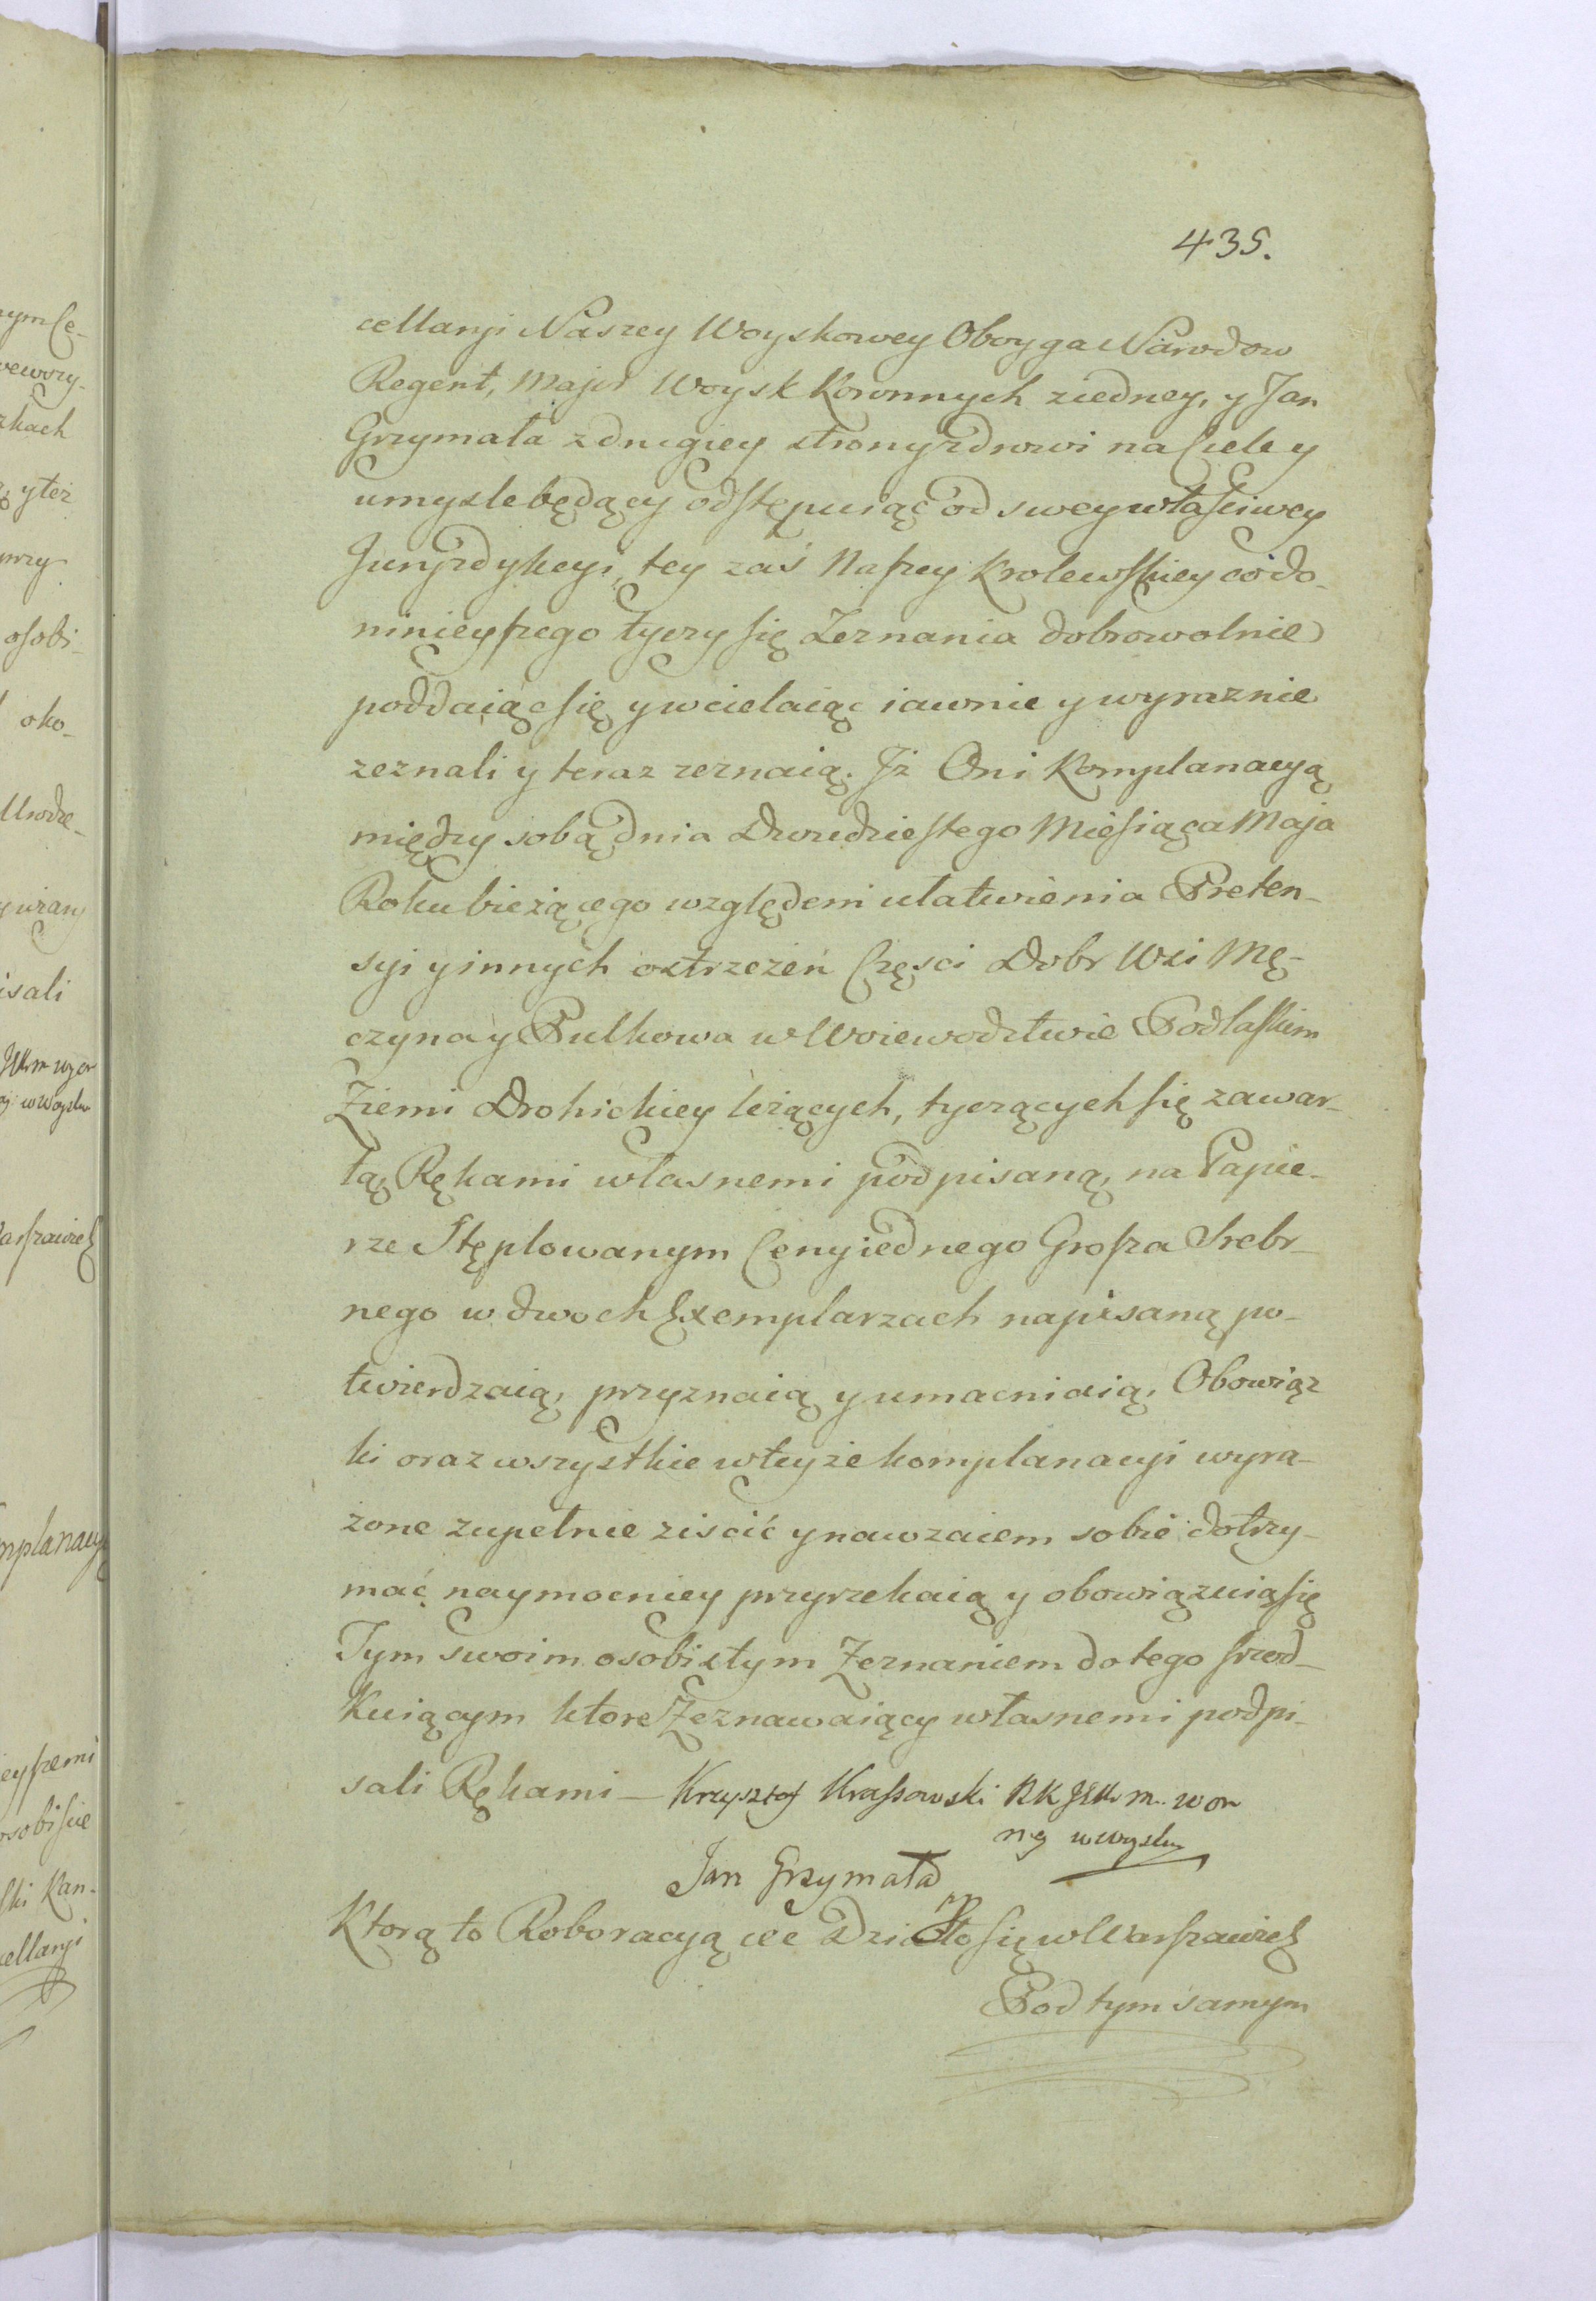 435.
cellaryi Naszey Woyskowey Oboyga Narodow
Regent, Major Woysk Koronnych ziedney, y Jan
Grzymała z drugiey strony zdrowi na Ciele y
umysle będący odstępuiąc od swey właściwey
Juryzdykcyi, tey zaś Naszey Krolewskiey co do
ninieyszego tyczy się Zeznania dobrowolnie
poddaiąc się y wcielaiąc iawnie y wyraznie
zeznali y teraz zeznaią. Jż Oni Komplanacyą
między sobą dnia Dwudziestego Miesiąca Maja
Roku bieżącego względem ułatwienia Preten-
syi y innych ostrzeżeń Części Dobr Wsi Mę-
czyna y Pulkowa w Woiewodztwie Podlaskim
Ziemi Drohickiey leżących, tyczących się zawar-
tą, Rękami własnemi podpisaną, na Papie-
rze Stęplowanym Ceny iednego Grosza Srebr-
nego w dwoch Exemplarzach napisaną po-
twierdzaią, przyznaią y umacniaią, Obowiąz
ki oraz wszystkie w teyże komplanacyi wyra-
żone zupełnie ziscić y nawzaiem sobie dotrzy-
mać naymocniey przyrzekaią y obowiązuią się
Tym swoim osobistym Zeznaniem do tego srzod-
kuiącym ktore Zeznawaiący własnemi podpi-
sali Rękami — Krzysztof Krassowski RK m. wor
Jan Grzymała
Ktorą to Roboracyą etc Działo się w Warszawie
Pod tym samym
ymCę-
zkach
y też
przy
osobi-
oko-
Urodze-
isali
Warszawie
mplanacy
eyszemi
osobiście
ski Kan-
cellaryi